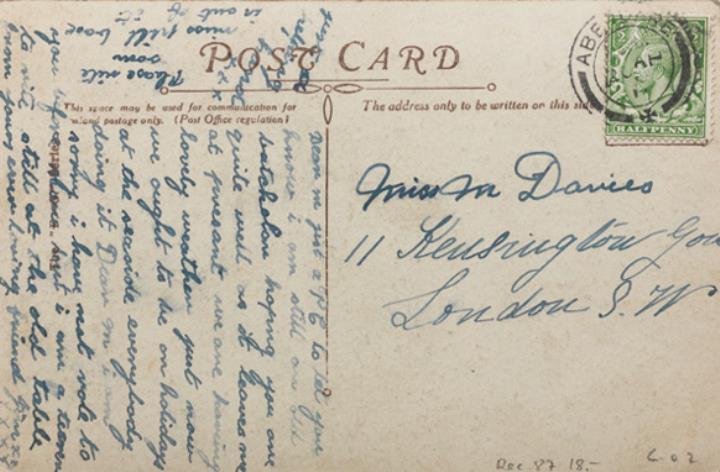 POST CARD
This space may be used for communication for
inland postage only. (Post Office regulation)
The address only to be written on this side
HALFPENNY
Miss M Davies
11 Kensington
London S. W
Dear M just a P.C. to let you
know i am still an old
hoping you are
quite well as it leaves me
at presant we are having
lovely weather just now
we ought to be on holidays
at the seaside everybody
doing it Dear M i am
sorry i have not rote to
you before but i am a
to rite still at the old table
from yours ever loving friend
Please rite
soon
miss pill box
is out of it
Dec. 87 18.-